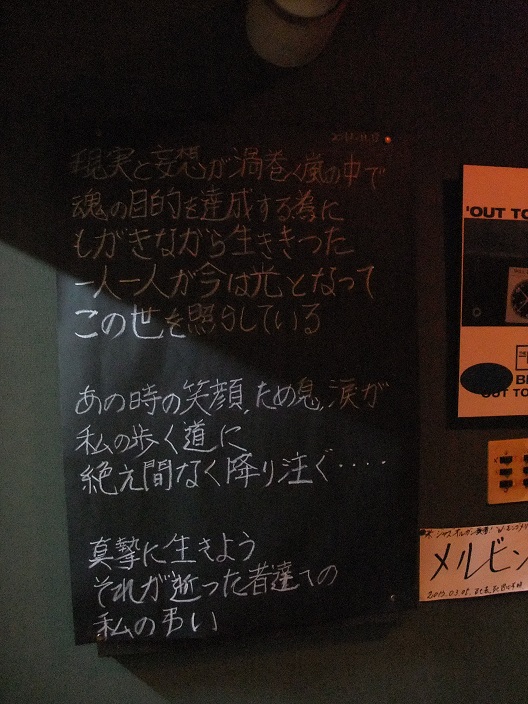 現実と妄想が渦巻く嵐の中で
魂の目的を達成する為に
もがきながら生ききった
一人一人が今は光となって
この世を照らしている
あの時の笑顔、ため息、涙が
私の歩く道に
絶え間なく降り注ぐ‥‥
真摯に生きよう
それが逝った者達への
私の弔い
'OUT TO
BL
OUT TO
メルビン